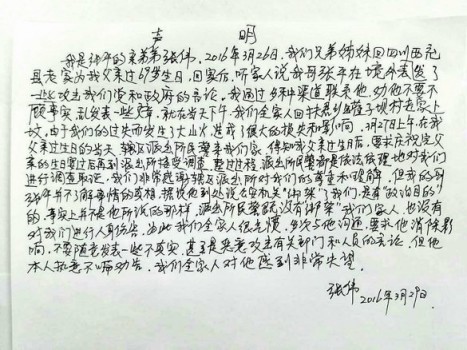 声 明
我是张平的亲弟弟张伟，2016年3月26日，我们兄弟姊妹回四川西充
县老家为我父亲过69岁生日，回家后，听家人说我哥张平在境外发了
一些攻击我们党和政府的言论。我通过多种渠道联系他，劝他不要不
顾事实，乱发表一些文章，就在当天下午，我们全家人回扶君乡 子坝村去家上
坟，由于我们的过失而发生了大山火，造成了很大的损失和影响，3月27日上午，在我
父亲过生日的当天，辖区派出所民警来我们家，得知我父亲过生日后，要求庆祝完父
亲的生日宴过后再到派出所接受调查，整过程，派出所民警都是依法依理，也对我们
进行调查取证，我们非常感谢辖区派出所对我们的尊重和理解，但我的哥哥
张平并不了解事情的真相，据说他到处说公安机关"绑架"了我们，是有"政治目的"
的，事实上并不是他所说的那样，派出所民警既没有"绑架"我们家人，也没有
对我们进行人身伤害，为此我们全家人很气愤，多次与他沟通，要求他消除影
响，不要随意发表一些不真实，甚至是恶意攻击有关部门和人员的言论，但他
本人执意不听劝告，我们全家人对他感到非常失望。
张伟
2016年3月29日